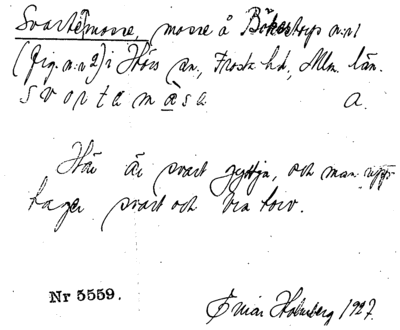 Svarte mosse, mosse å Bökestorps n:r 1
(fig. n:r 2) i Hörs sn., Frosta hd., Mlm. län.
svortamåsa. a.
Här är svart gyttja, och man upp-
tager svart och bra torv.
Nr 5559.
Einar Holmberg 1927.